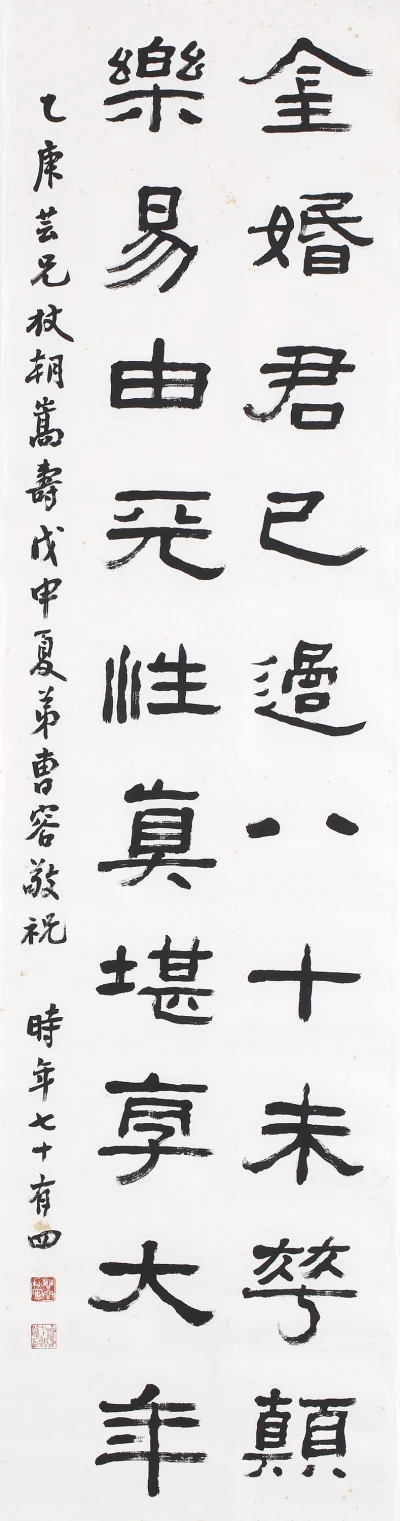 金婚君已過八十未華顛
樂易由天性真堪享大年
乙康芸兄杖朝嵩壽戊申夏弟曹容敬祝 時年七十有四